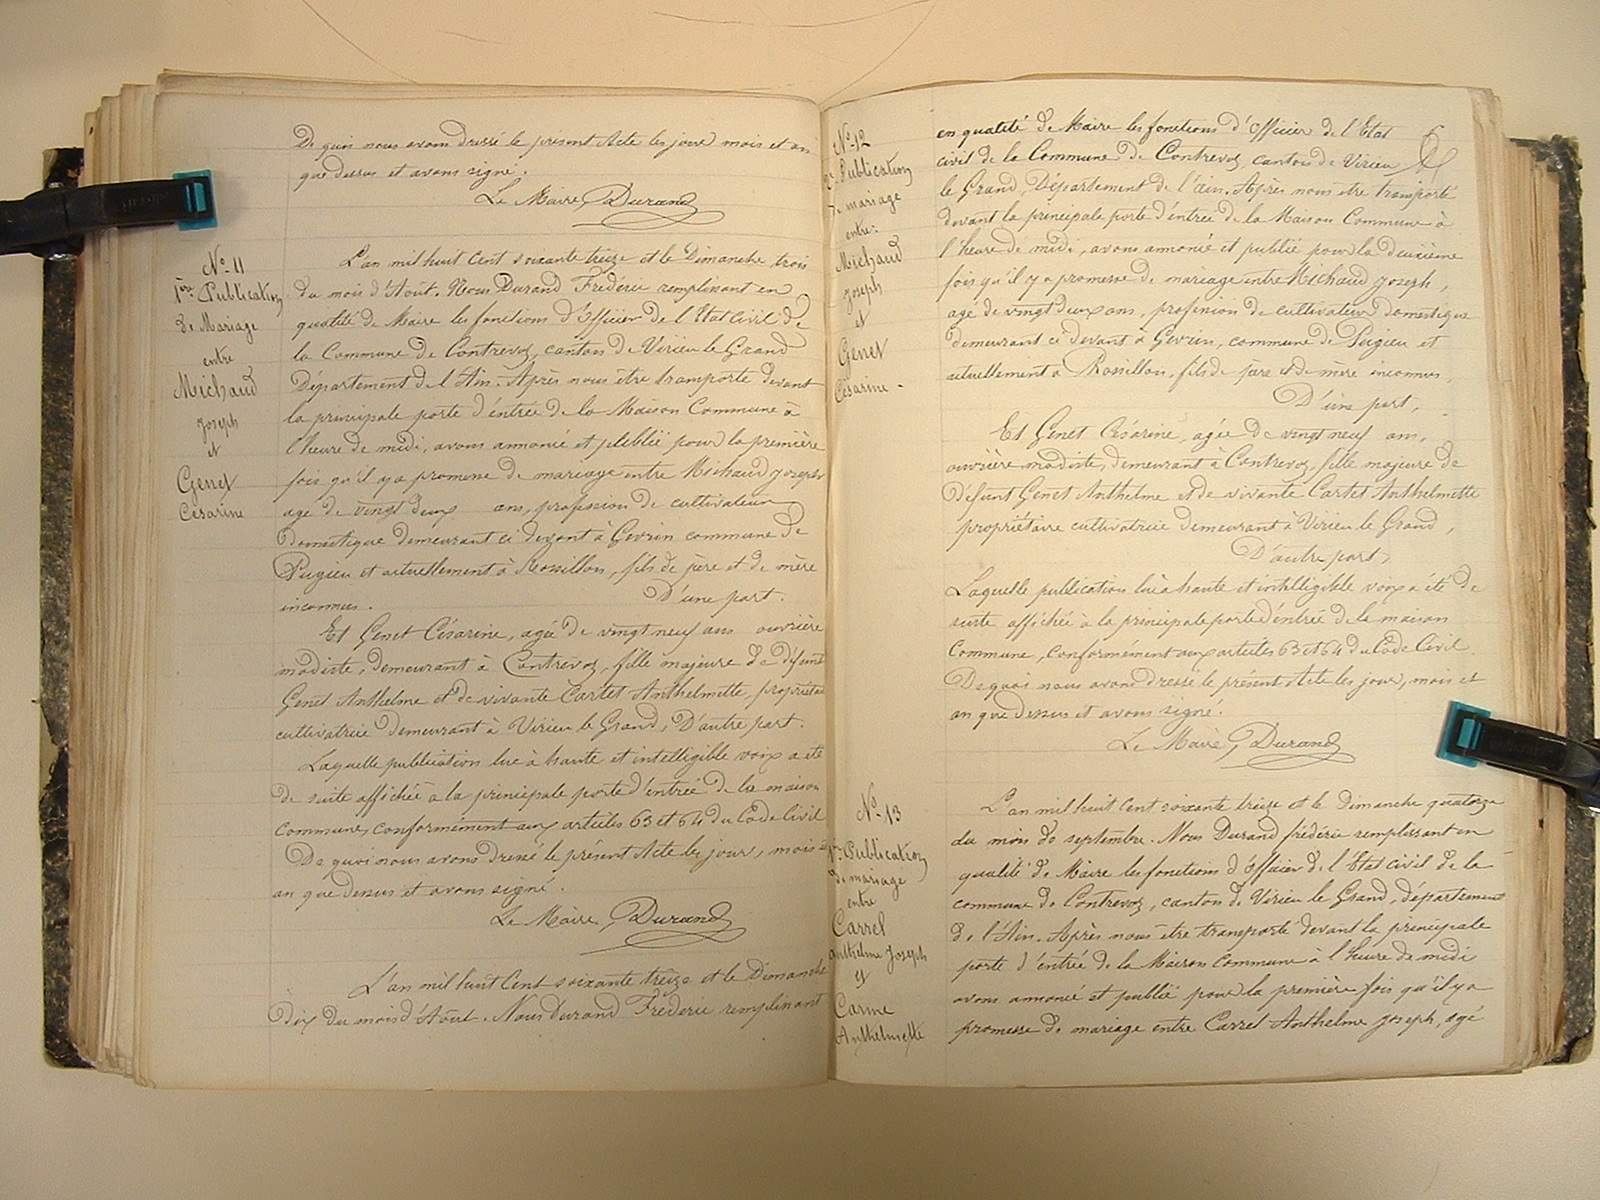 De quoi nous avons dressé le présent Acte les jour, mois et an
que dessus et avons signé.
Le Maire, Durand
N° 11
1ère Publication
de Mariage
entre
Michaud
Joseph
et
Genet
Césarine
L'an mil huit Cent soixante treize et le Dimanche trois
du mois d'Août. Nous Durand Fréderic remplissant en
qualité de Maire les fonctions d'Officier de l'Etat Civil de
la Commune de Contrevoz, canton de Virieu le Grand
Département de l'Ain. Après nous être transporté devant
la principale porte d'entrée de la Maison Commune à
l'heure de midi, avons annoncé et publié pour la première
fois qu'il y a promesse de mariage entre Michaud Joseph
age de vingt deux ans, profession de cultivateur
Domestique demeurant ci devant à Gevrin commune de
Pugieu et actuellement à Rossillon, fils de père et de mère
inconnus. D'une part.
Et Genet Césarine, agée de vingt neuf ans ouvrière
modiste, demeurant à Contrevoz, fille majeure de défunt
Genet Anthelme et de vivante Cartet Anthelmette, propriétaire
cultivatrice demeurant à Virieu le Grand, D'autre part.
Laquelle publication lue à haute et intelligible voix a été
de suite affichée a la principale porte d'entrée de la maison
commune, conformément aux articles 63 et 64 du Code Civil
De quoi nous avons dressé le présent Acte les jour, mois et
an que dessus et avons signé.
Le Maire, Durand
L'an mil huit Cent soixante treize et le Dimanche
dix du mois d'Août. Nous Durand Fréderic remplissant
N° 12
2e Publication
de mariage
entre:
Michaud
Joseph
et
Genet
Césarine.
en qualité de Maire les fonctions d'Officier de l'Etat
civil de la Commune de Contrevoz, canton de Virieu
le Grand, Département de l'ain. Après nous être transporté
devant la principale porte d'entrée de la Maison Commune à
l'heure de midi, avons annoncé et publié pour la deuxième
fois qu'il y a promesse de mariage entre Michaud Joseph,
age de vingt deux ans, profession de cultivateur domestique
demeurant ci devant à Gevrin, commune de Pugieu et
actuellement à Rossillon, fils de père et de mère inconnus,
D'une part,
Et Genet Césarine, agée de vingt neuf ans,
ouvrière modiste, demeurant à Contrevoz, fille majeure de
défunt Genet Anthelme et de vivante Cartet Anthelmette
propriétaire cultivatrice demeurant à Virieu le Grand,
D'autre part,
Laquelle publication lue à haute et intelligible voix a été de
suite affichée à la principale porte d'entrée de la maison
Commune, conformément aux articles 63 et 64 du Code Civil.
De quoi nous avons dressé le présent Acte les jour, mois et
an que dessus et avons signé.
Le Maire, Durand
N° 13
1re Publication
de mariage
entre
Carrel
Anthelme Joseph
et
Carine
Anthelmette
L'an mil huit Cent soixante treize et le Dimanche quatorze
du mois de septembre. Nous Durand fréderic remplissant en
qualité de Maire les fonctions d'officier de l'Etat civil de la
commune de Contrevoz, canton de Virieu le Grand, département
de l'Ain. Après nous être transporté devant la principale
porte d'entrée de la Maison Commune à l'heure de midi
avons annoncé et publié pour la première fois qu'il y a
promesse de mariage entre Carrel Anthelme Joseph, agé